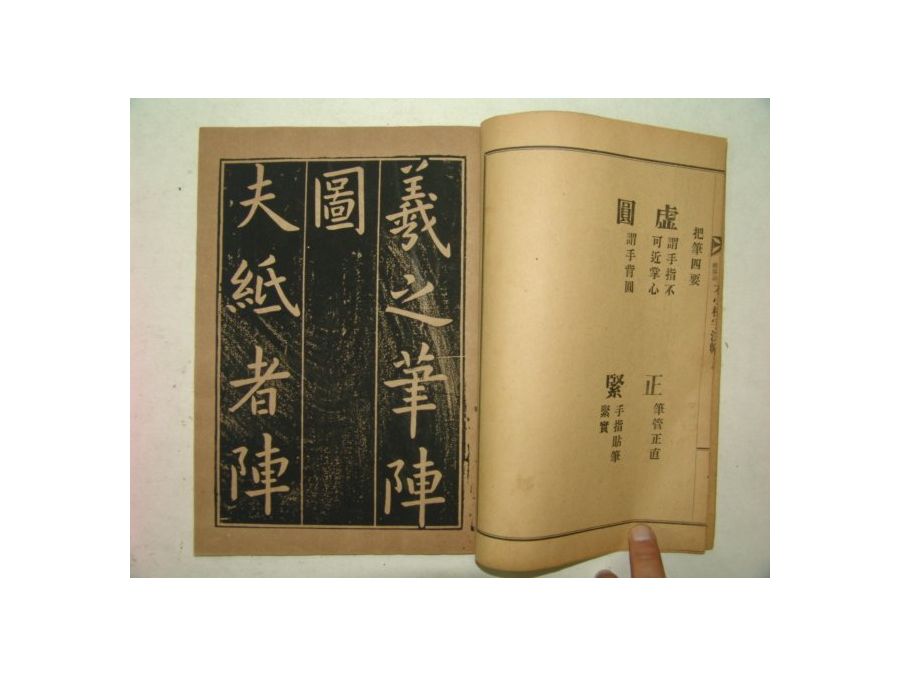 把筆四要
虛 謂手指不可近掌心
正 筆管正直
圓 謂手背圓
緊 手指貼筆緊實
羲之筆陣
圖
夫紙者陣